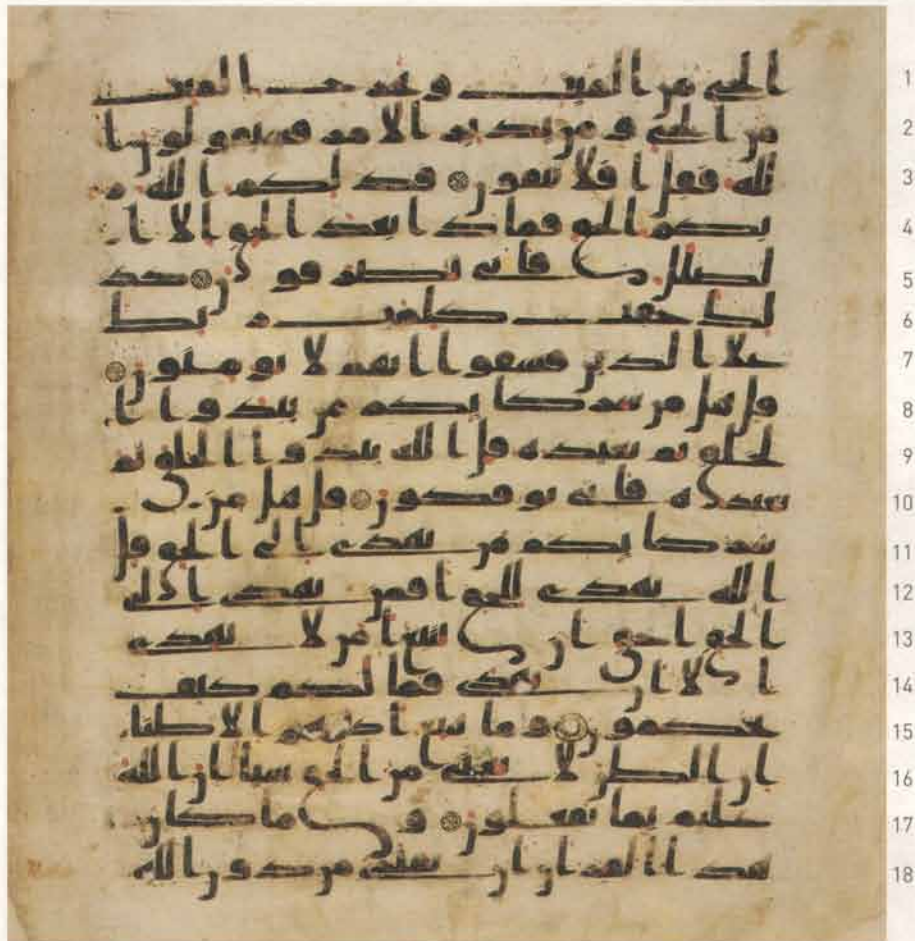 الحي من الميت ويخرج الميت 1
من الحي ومن يدبر الامر فسيقولون ا 2
لله فقل افلا تتقون فذلكم الله ر 3
بكم الحق فماذا بعد الحق الا ا 4
لضلل فانى تصرفون كذ 5
لك حقت كلمت ربك 6
على الذين فسقوا انهم لا يومنون 7
قل هل من شركايكم من يبدوا ا 8
لخلق ثم يعيده قل الله يبدوا الخلق ثم 9
يعيده فانى توفكون قل هل من 10
شركايكم من يهدي الى الحق قل 11
الله يهدي للحق افمن يهدي الى 12
الحق احق ان يتبع امن لا يهدي 13
الا ان يهدى فما لكم كيف 14
تحكمون وما يتبع اكثرهم الا ظنا 15
ان الظن لا يغني من الحق شيا ان الله 16
عليم بما يفعلون وما كان 17
هذا القران ان يفترى من دون الله 18